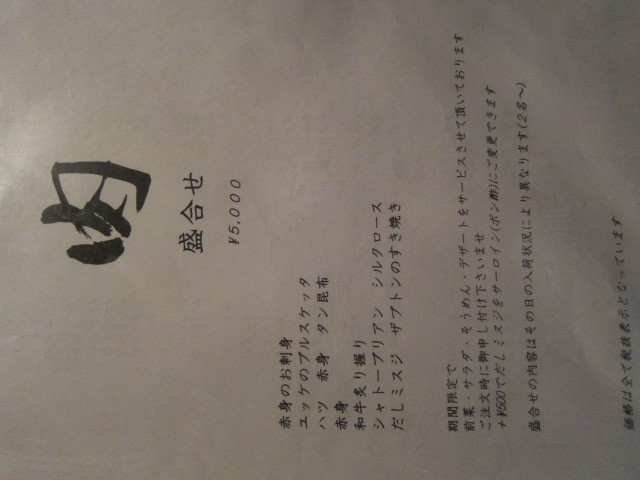 肉
盛合せ
¥5,000
赤身のお刺身
ユッケのブルスケッタ
ハツ 赤身 タン昆布
赤身
和牛炙り握り
シャトーブリアン シルクロース
だしミスジ ザブトンのすき焼き
期間限定で
前菜・サラダ・そうめん・デザートをサービスさせて頂いております
ご注文時に御申し付け下さいませ
+¥500でだしミスジをサーロイン(ポン酢)にご変更できます
盛合せの内容はその日の入荷状況により異なります(2名〜)
価格は全て税抜表示となっています